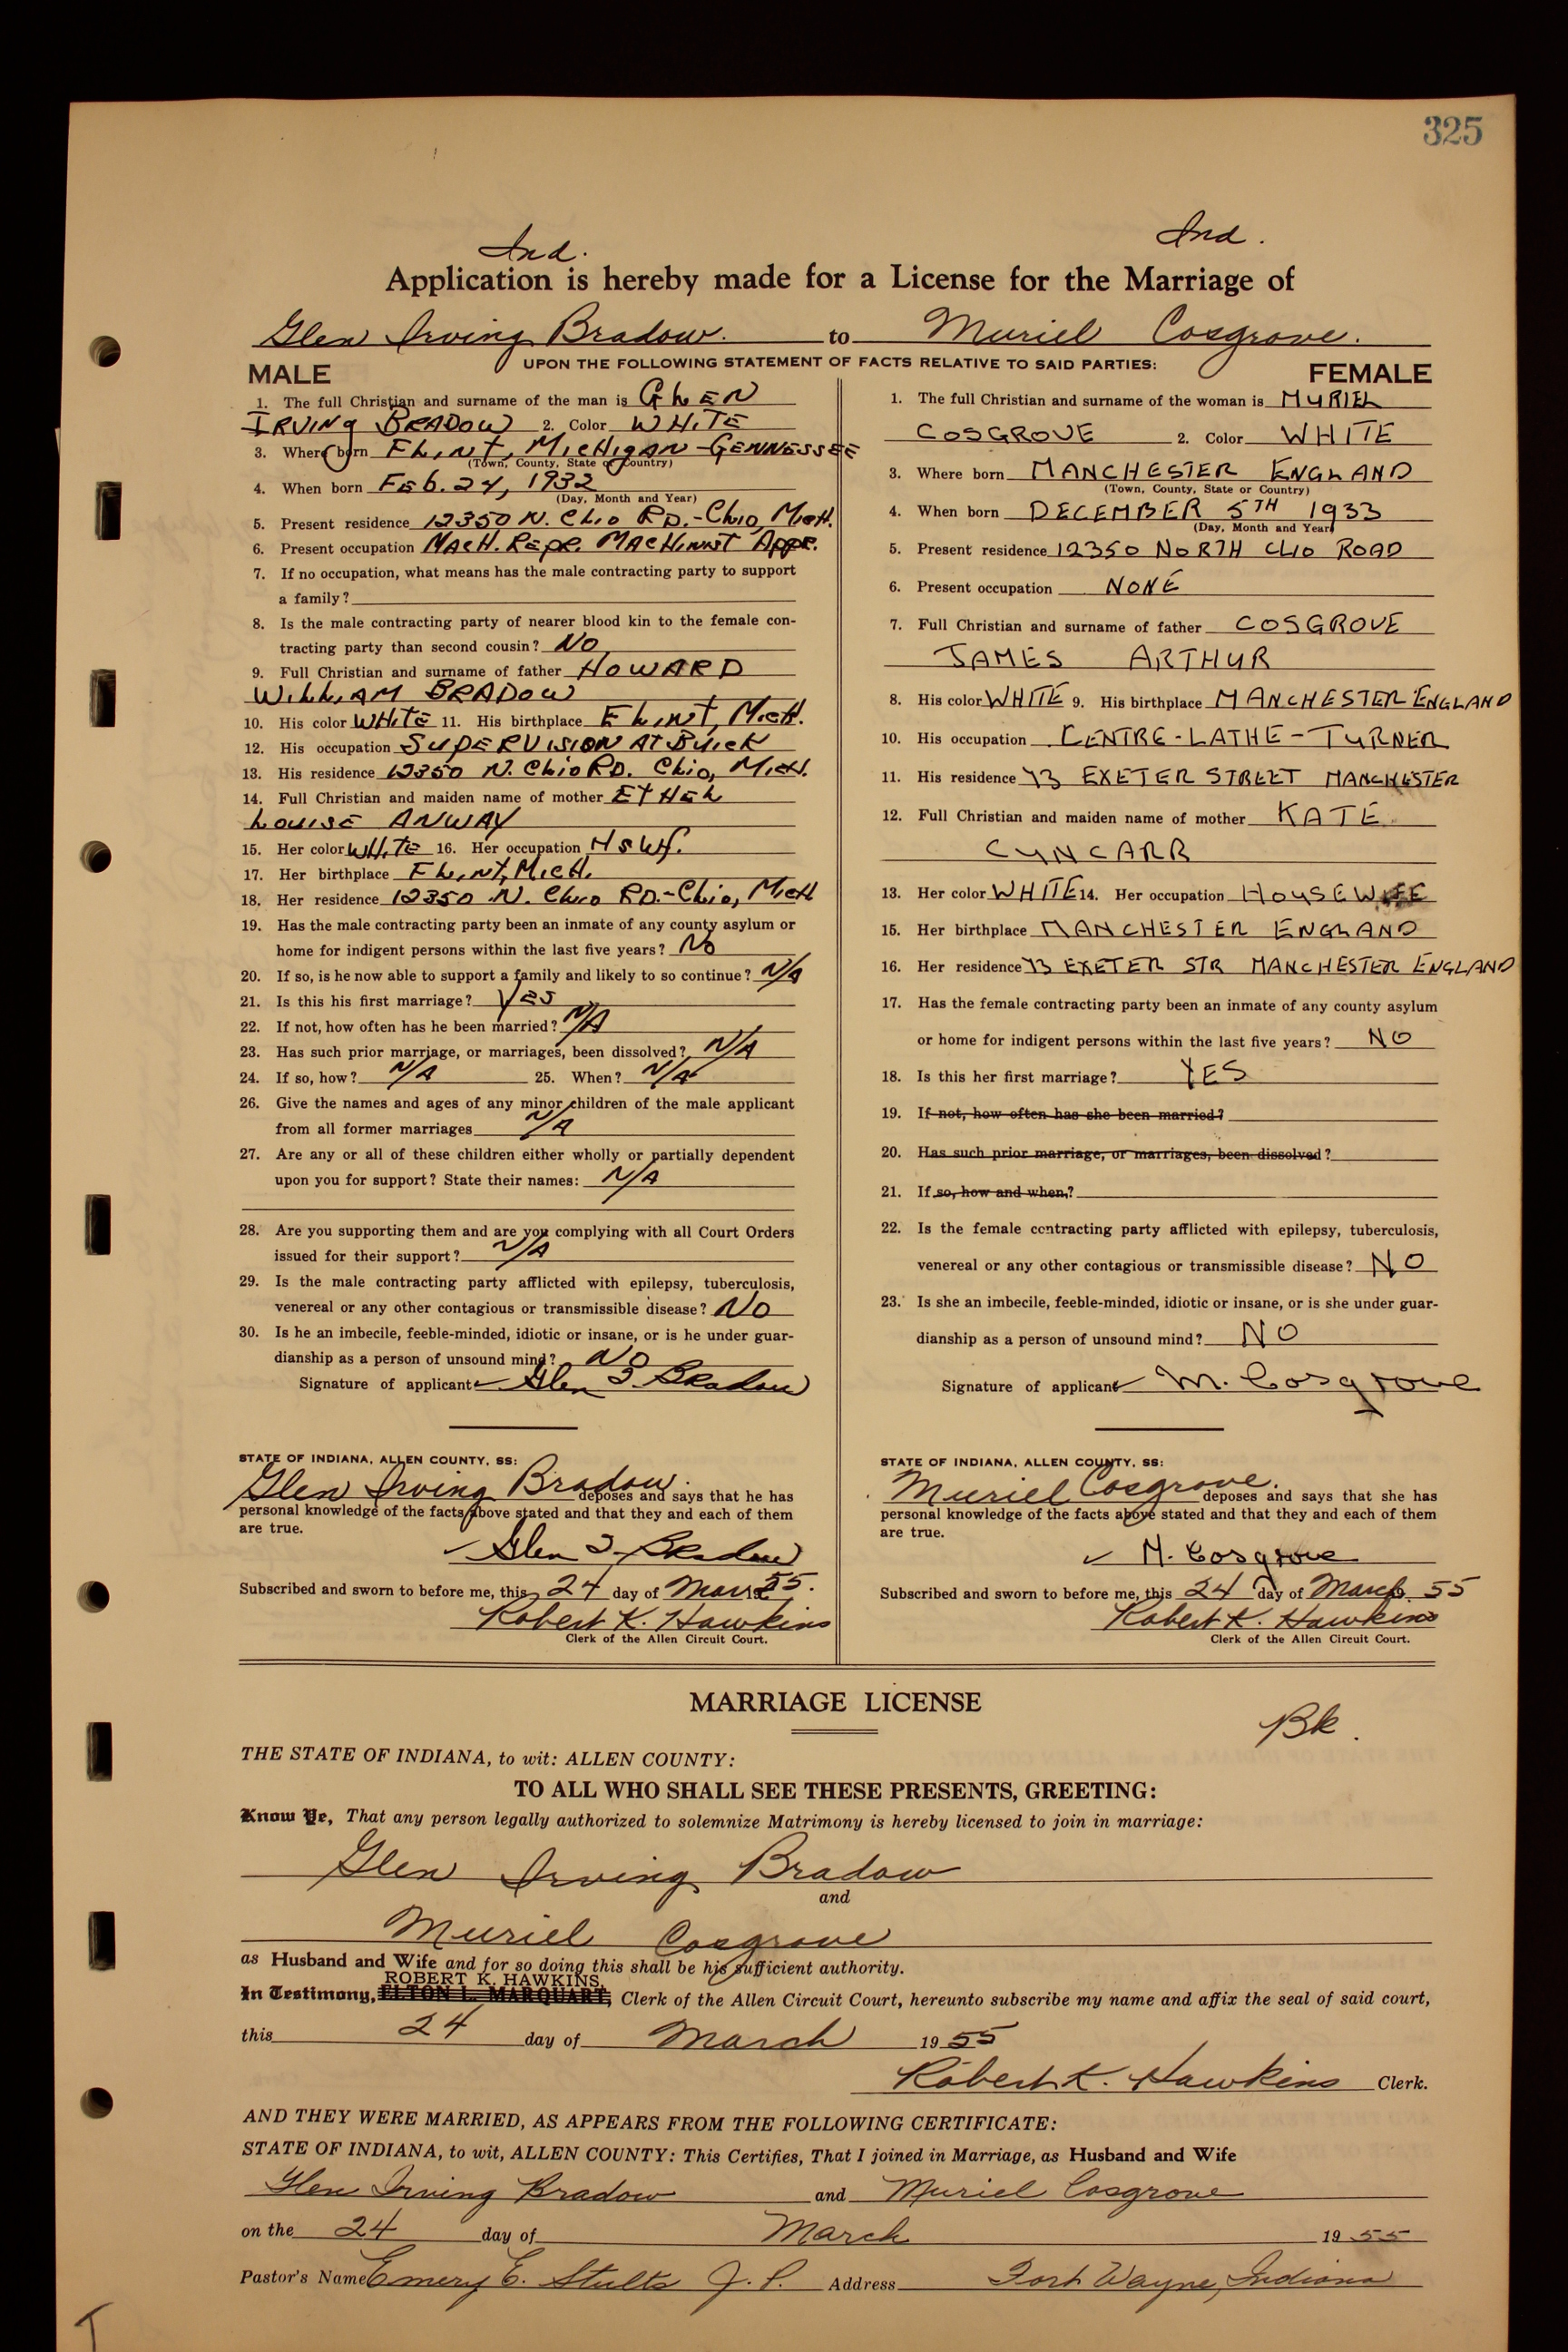 325
Ind. Ind.
Application is hereby made for a License for the Marriage of
Glen Irving Bradow. to Muriel Cosgrove.
UPON THE FOLLOWING STATEMENT OF FACTS RELATIVE TO SAID PARTIES:
MALE
1. The full Christian and surname of the man is GLEN
IRVING BRADOW 2. Color WHITE
3. Where born FLINT, MICHIGAN - GENNESSEE
(Town, County, State or Country)
4. When born FEB. 24, 1932
(Day, Month and Year)
5. Present residence 12350 N. Clio RD. - Clio, MICH.
6. Present occupation MACH. REPR. MACHINIST APPR.
7. If no occupation, what means has the male contracting party to support
a family?
8. Is the male contracting party of nearer blood kin to the female con-
tracting party than second cousin? NO
9. Full Christian and surname of father HOWARD
WILLIAM BRADOW
10. His color WHITE 11. His birthplace FLINT, MICH.
12. His occupation SUPERVISION AT BUICK
13. His residence 12350 N. Clio RD. Clio, MICH.
14. Full Christian and maiden name of mother ETHEL
LOUISE ANWAY
15. Her color WHITE 16. Her occupation HSWF.
17. Her birthplace FLINT, MICH.
18. Her residence 12350 N. Clio RD - Clio, MICH
19. Has the male contracting party been an inmate of any county asylum or
home for indigent persons within the last five years? No
20. If so, is he now able to support a family and likely to so continue? N/A
21. Is this his first marriage? YES
22. If not, how often has he been married? N/A
23. Has such prior marriage, or marriages, been dissolved? N/A
24. If so, how? N/A 25. When? N/A
26. Give the names and ages of any minor children of the male applicant
from all former marriages N/A
27. Are any or all of these children either wholly or partially dependent
upon you for support? State their names: N/A
28. Are you supporting them and are you complying with all Court Orders
issued for their support? N/A
29. Is the male contracting party afflicted with epilepsy, tuberculosis,
venereal or any other contagious or transmissible disease? NO
30. Is he an imbecile, feeble-minded, idiotic or insane, or is he under guar-
dianship as a person of unsound mind? NO
Signature of applicant Glen I. Bradow
STATE OF INDIANA, ALLEN COUNTY, SS:
Glen Irving Bradow. deposes and says that he has
personal knowledge of the facts above stated and that they and each of them
are true.
Glen I. Bradow
Subscribed and sworn to before me, this 24 day of Mar 55.
Robert K. Hawkins
Clerk of the Allen Circuit Court.
FEMALE
1. The full Christian and surname of the woman is MURIEL
COSGROVE 2. Color WHITE
3. Where born MANCHESTER ENGLAND
(Town, County, State or Country)
4. When born DECEMBER 5TH 1933
(Day, Month and Year)
5. Present residence 12350 NORTH CLIO ROAD
6. Present occupation NONE
7. Full Christian and surname of father COSGROVE
JAMES ARTHUR
8. His color WHITE 9. His birthplace MANCHESTER ENGLAND
10. His occupation CENTRE-LATHE-TURNER
11. His residence 73 EXETER STREET MANCHESTER
12. Full Christian and maiden name of mother KATE
CUNCARR
13. Her color WHITE 14. Her occupation HOUSEWIFE
15. Her birthplace MANCHESTER ENGLAND
16. Her residence 73 EXETER STR MANCHESTER ENGLAND
17. Has the female contracting party been an inmate of any county asylum
or home for indigent persons within the last five years? NO
18. Is this her first marriage? YES
19. If not, how often has she been married?
20. Has such prior marriage, or marriages, been dissolved?
21. If so, how and when?
22. Is the female contracting party afflicted with epilepsy, tuberculosis,
venereal or any other contagious or transmissible disease? NO
23. Is she an imbecile, feeble-minded, idiotic or insane, or is she under guar-
dianship as a person of unsound mind? NO
Signature of applicant M. Cosgrove
STATE OF INDIANA, ALLEN COUNTY, SS:
Muriel Cosgrove. deposes and says that she has
personal knowledge of the facts above stated and that they and each of them
are true.
M. Cosgrove
Subscribed and sworn to before me, this 24 day of March 55
Robert K. Hawkins
Clerk of the Allen Circuit Court.
MARRIAGE LICENSE
Bk.
THE STATE OF INDIANA, to wit: ALLEN COUNTY:
TO ALL WHO SHALL SEE THESE PRESENTS, GREETING:
Know Ye, That any person legally authorized to solemnize Matrimony is hereby licensed to join in marriage:
Glen Irving Bradow
and
Muriel Cosgrove
as Husband and Wife and for so doing this shall be his sufficient authority.
ROBERT K. HAWKINS,
In Testimony, ELTON L. MARQUART, Clerk of the Allen Circuit Court, hereunto subscribe my name and affix the seal of said court,
this 24 day of March 1955
Robert K. Hawkins Clerk.
AND THEY WERE MARRIED, AS APPEARS FROM THE FOLLOWING CERTIFICATE:
STATE OF INDIANA, to wit, ALLEN COUNTY: This Certifies, That I joined in Marriage, as Husband and Wife
Glen Irving Bradow and Muriel Cosgrove
on the 24 day of March 1955
Pastor's Name Emery E. Stults J. P. Address Fort Wayne, Indiana